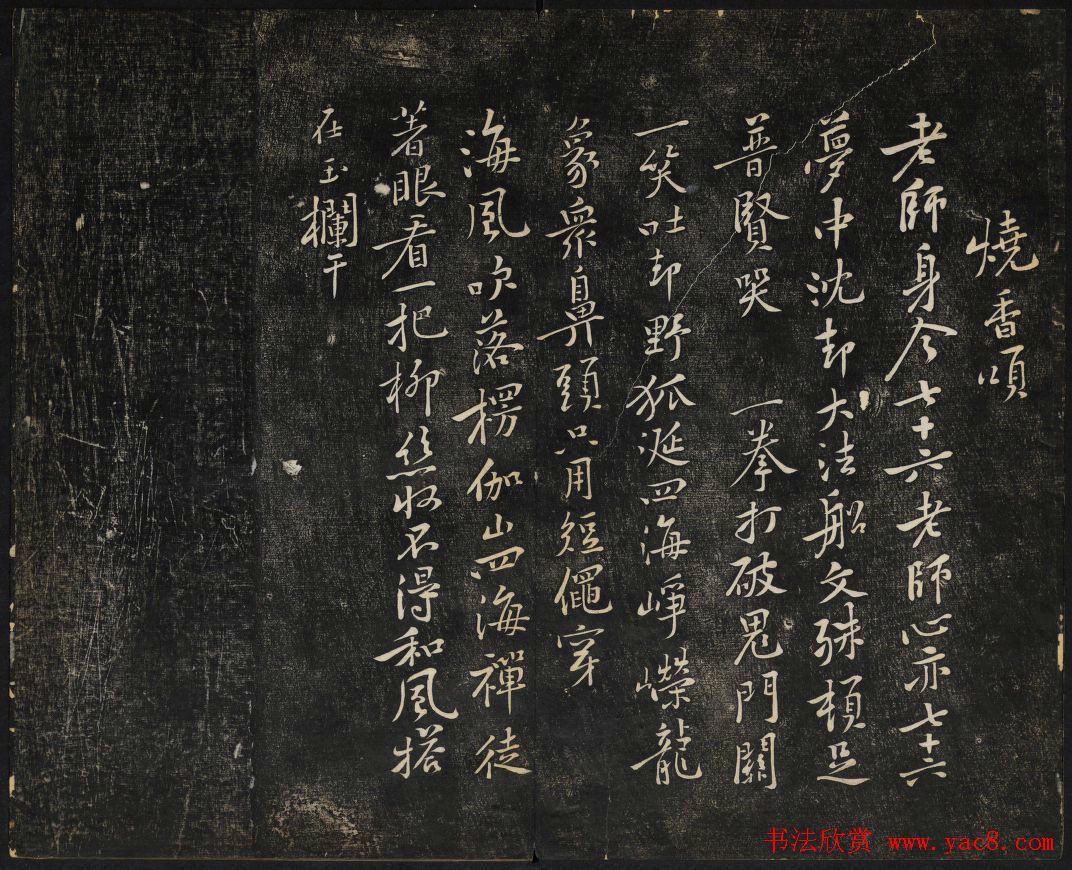 燒香頌
老師身今七十六老師心亦七十六
夢中沈却大法船文殊頓足
普賢哭 一拳打破鬼門關
一笑吐却野狐涎四海崢嶸龍
象衆鼻頭只用短繩穿
海風吹落楞伽山四海禪徒
著眼看一把柳絲收不得和風搭
在玉欄干
书法欣赏 www.yac8.com